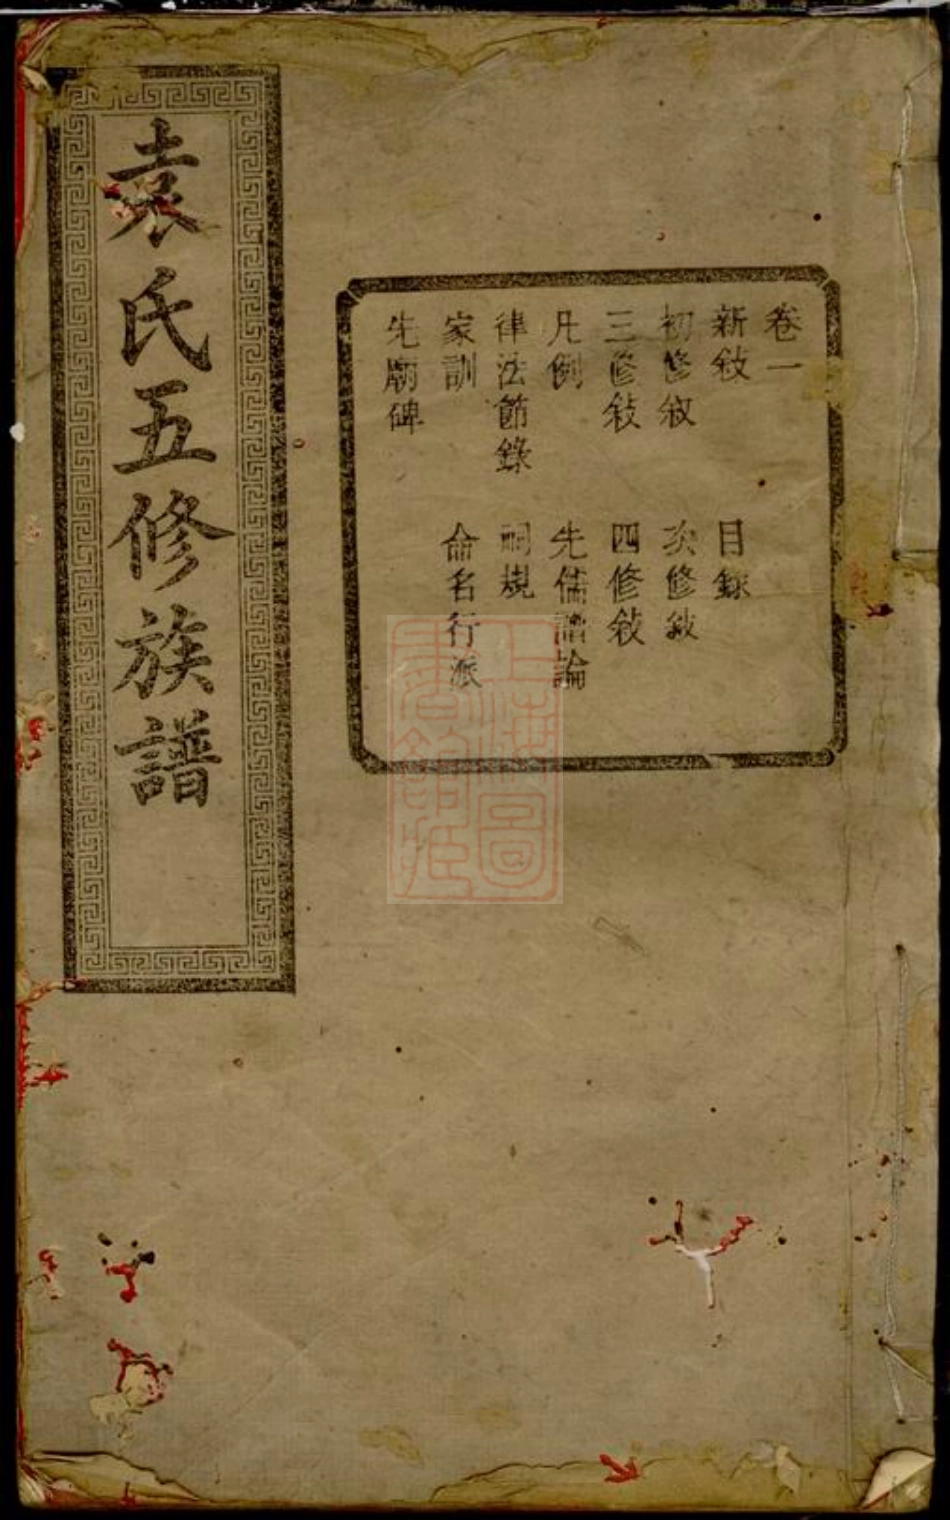 卷一
新敍 目錄
初修敍 次修敍
三修敍 四修敍
凡例 先儒譜論
律法節錄 祠規
家訓 命名行派
先廟碑
袁氏五修族譜
上海圖書館中庄